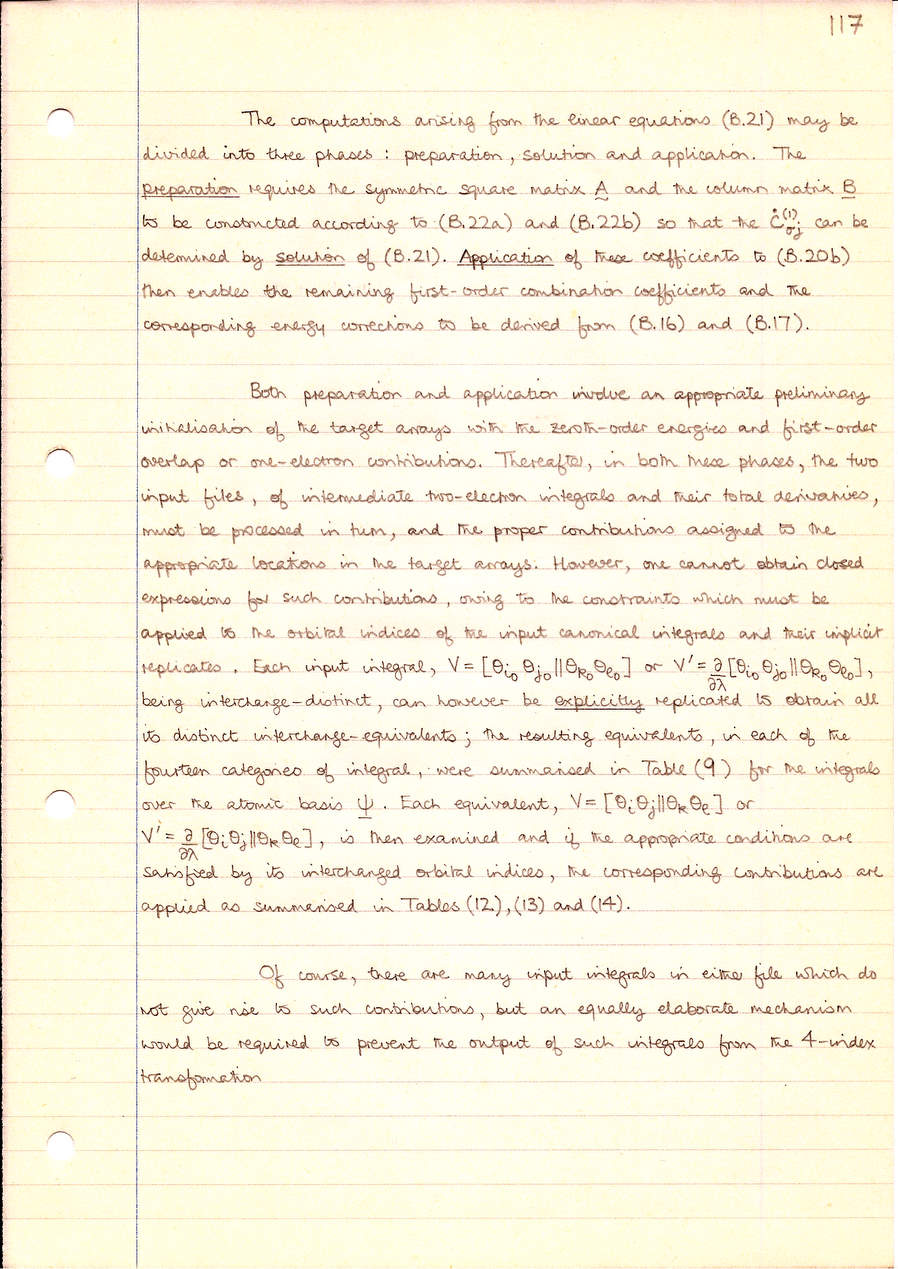 117
The computations arising from the linear equations (B.21) may be
divided into three phases : preparation, solution and application. The
preparation requires the symmetric square matrix A and the column matrix B
to be constructed according to (B.22a) and (B.22b) so that the C̊σj(1) can be
determined by solution of (B.21). Application of these coefficients to (B.20b)
then enables the remaining first-order combination coefficients and the
corresponding energy corrections to be derived from (B.16) and (B.17).
Both preparation and application involve an appropriate preliminary
initialisation of the target arrays with the zeroth-order energies and first-order
overlap or one-electron contributions. Thereafter, in both these phases, the two
input files, of intermediate two-electron integrals and their total derivatives,
must be processed in turn, and the proper contributions assigned to the
appropriate locations in the target arrays. However, one cannot obtain closed
expressions for such contributions, owing to the constraints which must be
applied to the orbital indices of the input canonical integrals and their implicit
replicates. Each input integral, V = [θi₀ θj₀||θk₀θl₀] or V' = ∂/∂λ [θi₀ θj₀||θk₀θl₀],
being interchange-distinct, can however be explicitly replicated to obtain all
its distinct interchange-equivalents; the resulting equivalents, in each of the
fourteen categories of integral, were summarised in Table (9) for the integrals
over the atomic basis ψ. Each equivalent, V = [θiθj||θkθl] or
V' = ∂/∂λ [θiθj||θkθl], is then examined and if the appropriate conditions are
satisfied by its interchanged orbital indices, the corresponding contributions are
applied as summarised in Tables (12), (13) and (14).
Of course, there are many input integrals in either file which do
not give rise to such contributions, but an equally elaborate mechanism
would be required to prevent the output of such integrals from the 4-index
transformation